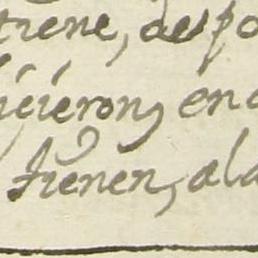 tiene, de po
icieron, en
tienen, a la